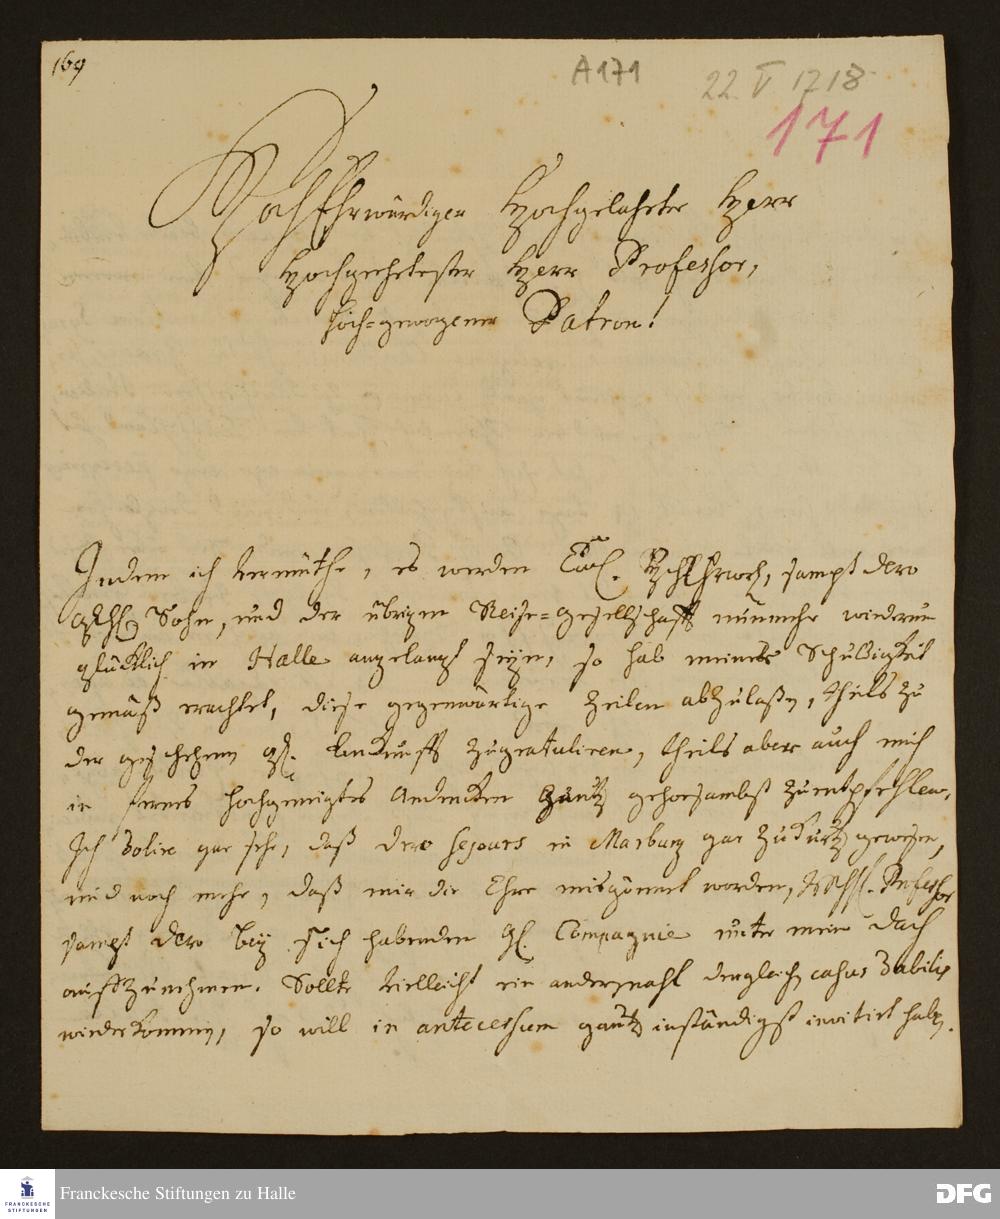 169
A171
22 V 1718
171
HochEhrwürdiger Hochgelahrter Herr
Hochgeehrtester Herr Professor,
Hoch=gewogener Patron!
Indem ich vermuthe, es werden Ew. HchEhrwch, sampt dero
Sohn, und der übrigen Reise=Gesellschafft nunmehr wiederum
glücklich in Halle angelangt seyn, so hab meiner Schuldigkeit
gemäß erachtet, diese gegenwärtige Zeilen abzulaßen, theils zu
der geschehenen Ankunfft zu gratuliren, theils aber auch mich
in ferners hochgeneigtes Andencken gantz gehorsambst zu entpfehlen.
Ich dolire gar sehr, daß dero sejours in Marburg gar zu kurtz gewesen,
und noch mehr, daß mir die Ehre misgönnet worden, Professor
sampt dero bey sich habenden Compagnie unter mein Dach
auffzunehmen. Sollte vielleicht ein andermahl dergleich casus
wiederkommen, so will in antecessum gantz inständigst invitirt haben.
Franckesche Stiftungen zu Halle
FRANCKESCHE
STIFTUNGEN
DFG